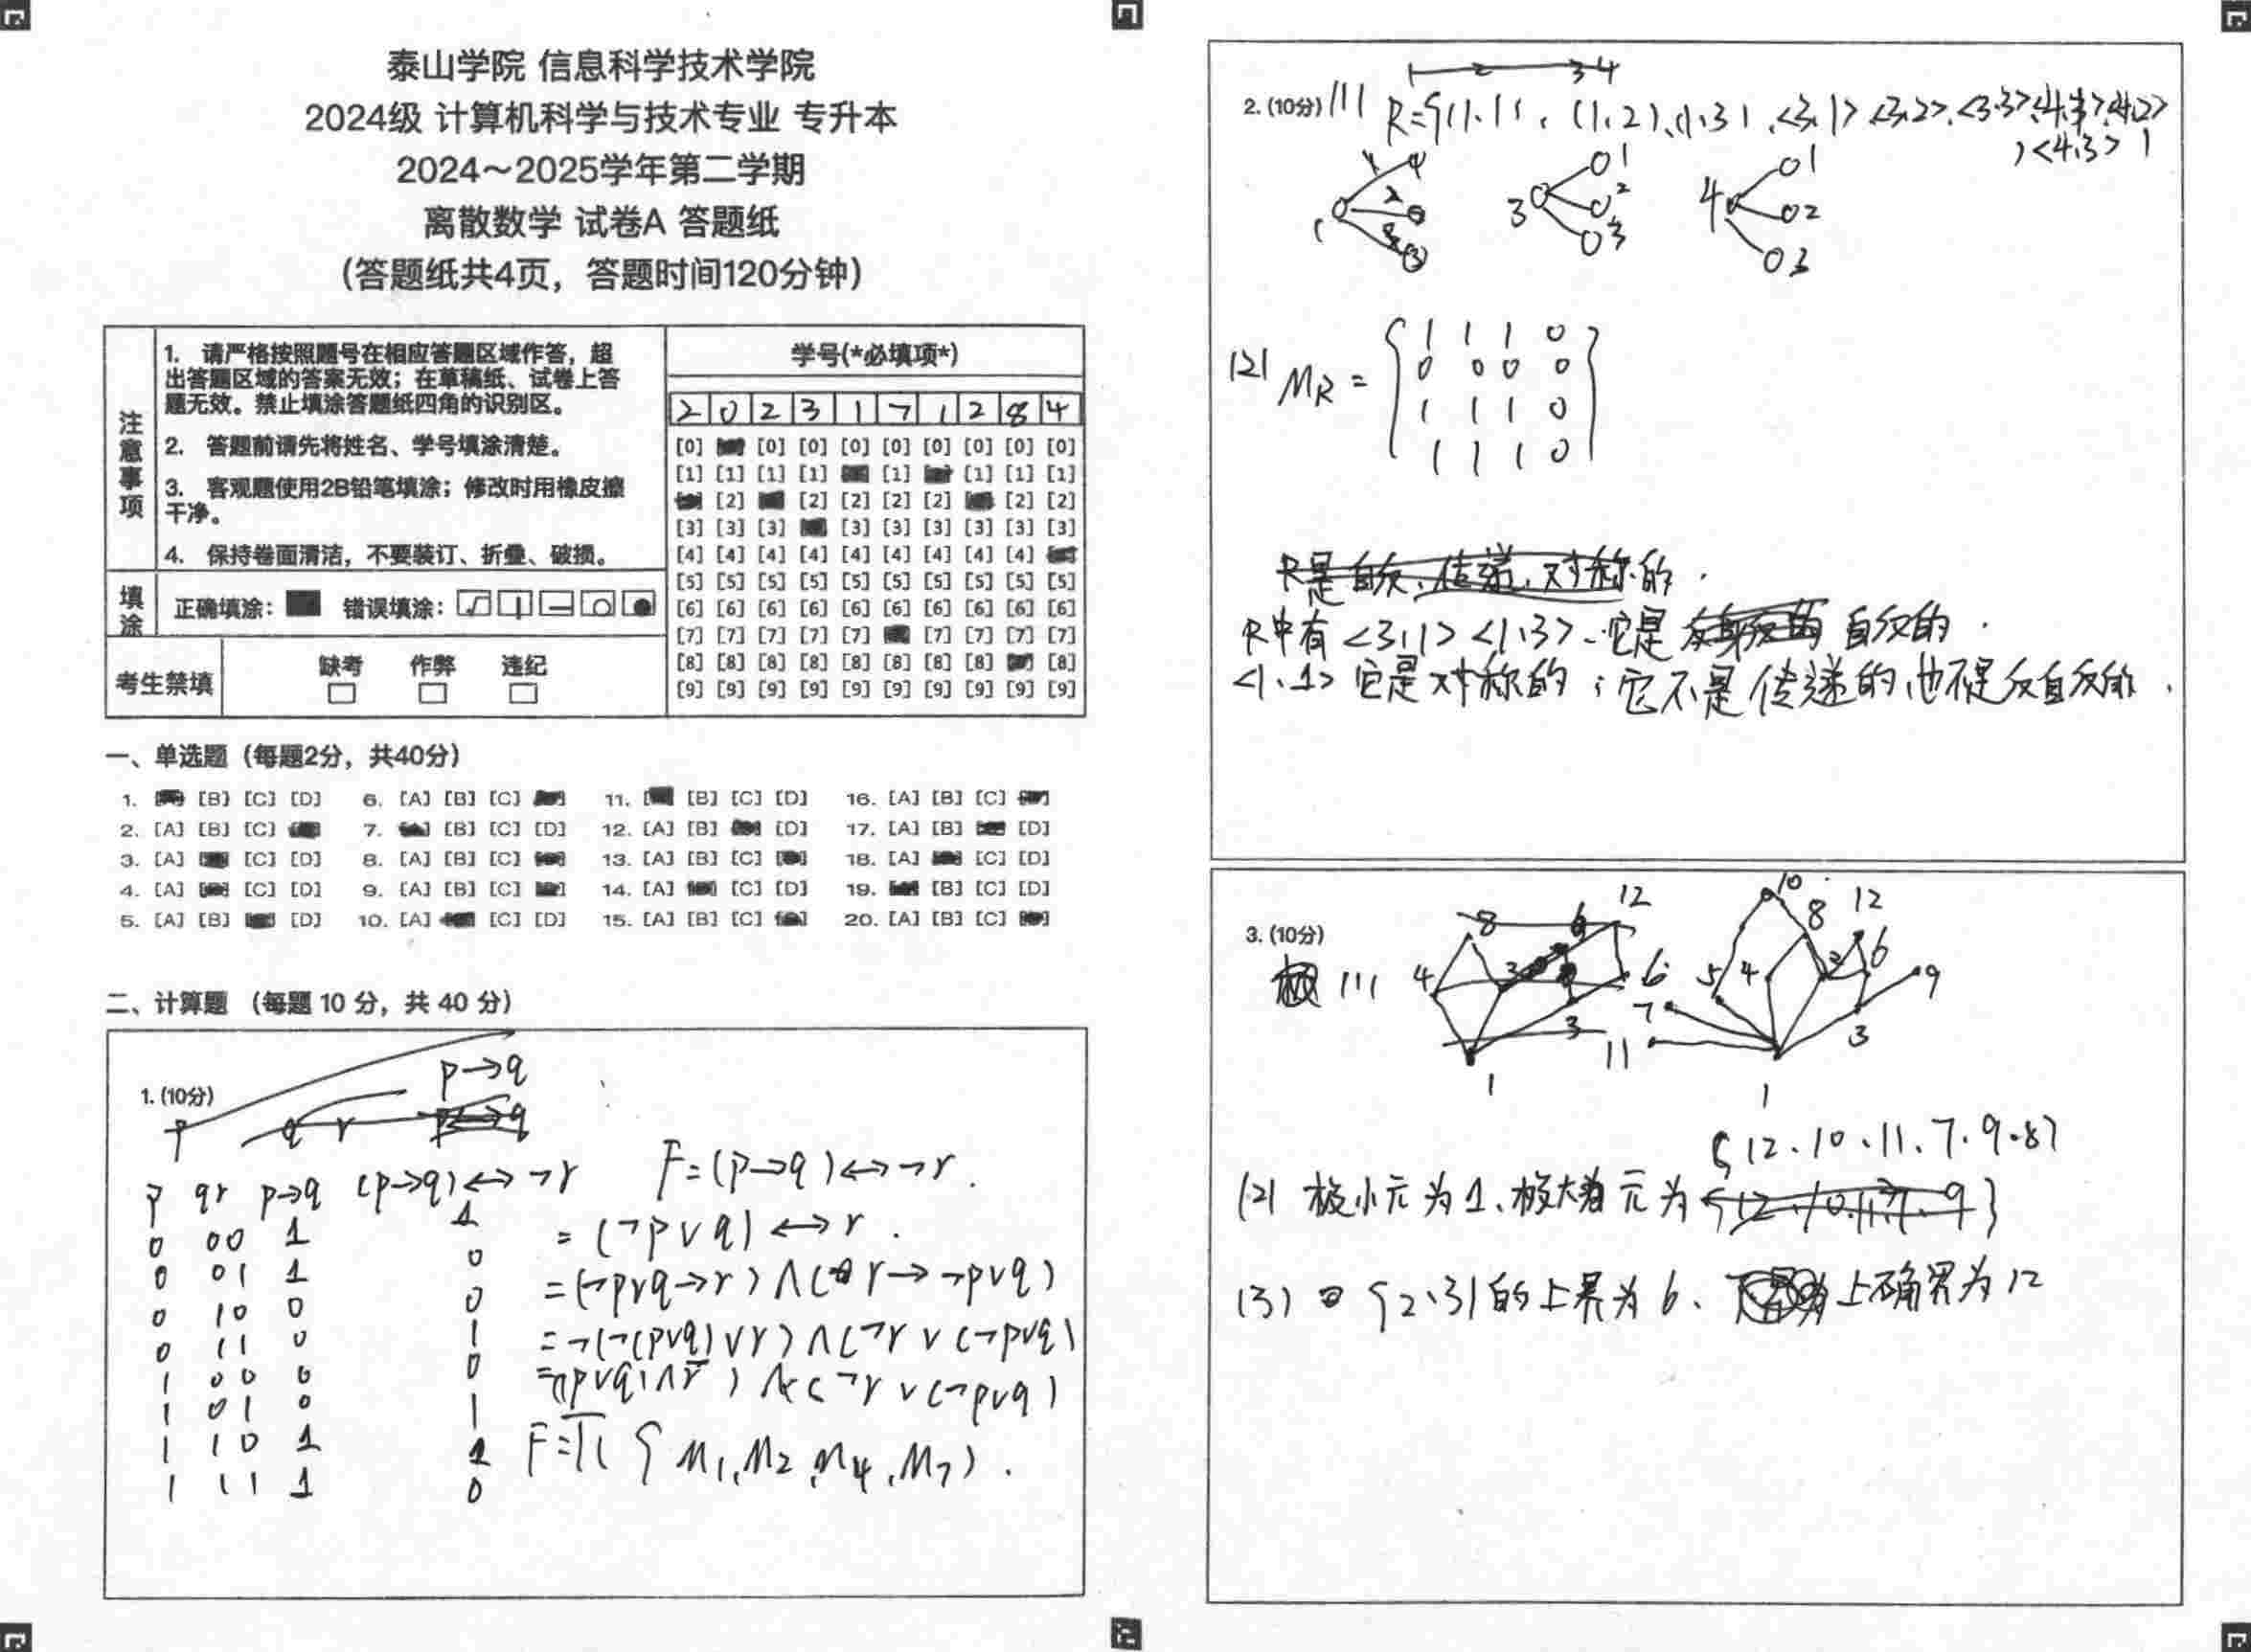 泰山学院 信息科学技术学院
2024级 计算机科学与技术专业 专升本
2024～2025学年第二学期
离散数学 试卷A 答题纸
（答题纸共4页，答题时间120分钟）
注意事项
1. 请严格按照题号在相应答题区域作答，超
出答题区域的答案无效；在草稿纸、试卷上答
题无效。禁止填涂答题纸四角的识别区。
2. 答题前请先将姓名、学号填涂清楚。
3. 客观题使用2B铅笔填涂；修改时用橡皮擦
干净。
4. 保持卷面清洁，不要装订、折叠、破损。
填涂
正确填涂： 错误填涂：
考生禁填
缺考 作弊 违纪
学号(*必填项*)
2 0 2 3 1 7 1 2 8 4
[0] [0] [0] [0] [0] [0] [0] [0] [0]
[1] [1] [1] [1] [1] [1] [1] [1]
[2] [2] [2] [2] [2] [2] [2]
[3] [3] [3] [3] [3] [3] [3] [3] [3]
[4] [4] [4] [4] [4] [4] [4] [4] [4]
[5] [5] [5] [5] [5] [5] [5] [5] [5] [5]
[6] [6] [6] [6] [6] [6] [6] [6] [6] [6]
[7] [7] [7] [7] [7] [7] [7] [7] [7]
[8] [8] [8] [8] [8] [8] [8] [8] [8]
[9] [9] [9] [9] [9] [9] [9] [9] [9] [9]
一、单选题（每题2分，共40分）
1. [B] [C] [D] 6. [A] [B] [C] 11. [B] [C] [D] 16. [A] [B] [C]
2. [A] [B] [C] 7. [B] [C] [D] 12. [A] [B] [D] 17. [A] [B] [D]
3. [A] [C] [D] 8. [A] [B] [C] 13. [A] [B] [C] 18. [A] [C] [D]
4. [A] [C] [D] 9. [A] [B] [C] 14. [A] [C] [D] 19. [B] [C] [D]
5. [A] [B] [D] 10. [A] [C] [D] 15. [A] [B] [C] 20. [A] [B] [C]
二、计算题 （每题 10 分，共 40 分）
1. (10分)
p→q
p q r
p q r p→q (p→q)↔¬r
0 0 0 1 1
0 0 1 1 0
0 1 0 0 0
0 1 1 0 1
1 0 0 0 0
1 0 1 0 1
1 1 0 1 1
1 1 1 1 0
F=(p→q)↔¬r.
=(¬p∨q)↔r.
=(¬p∨q→r)∧(r→¬p∨q)
=¬(¬(p∨q)∨r)∧(¬r∨(¬p∨q)
∧(¬r∨(¬p∨q)
F=π{M1,M2,M4,M7).
2. (10分) (1) R={(1,1),(1,2),(1,3),<3,1>,<3,2>,<3,3>,<4,1>,<4,2>
,<4,3>}
1 2 3 4
1 4 2 3
3 1 2 3
4 1 2 3
(2) MR =
1 1 1 0
0 0 0 0
1 1 1 0
1 1 1 0
R是自反、传递、对称的.
R中有<3,1><1,3>.它是 自反的.
<1,1>它是对称的；它不是传递的,也不是反自反的.
3. (10分)
(1)
8 12 4 6 3 1
10 8 12 5 4 2 6 9 7 11 3 1
{12.10.11.7.9.8}
(2) 极小元为1、极大元为{12.10.11.7.9}
(3) {2,3}的上界为6、上确界为12